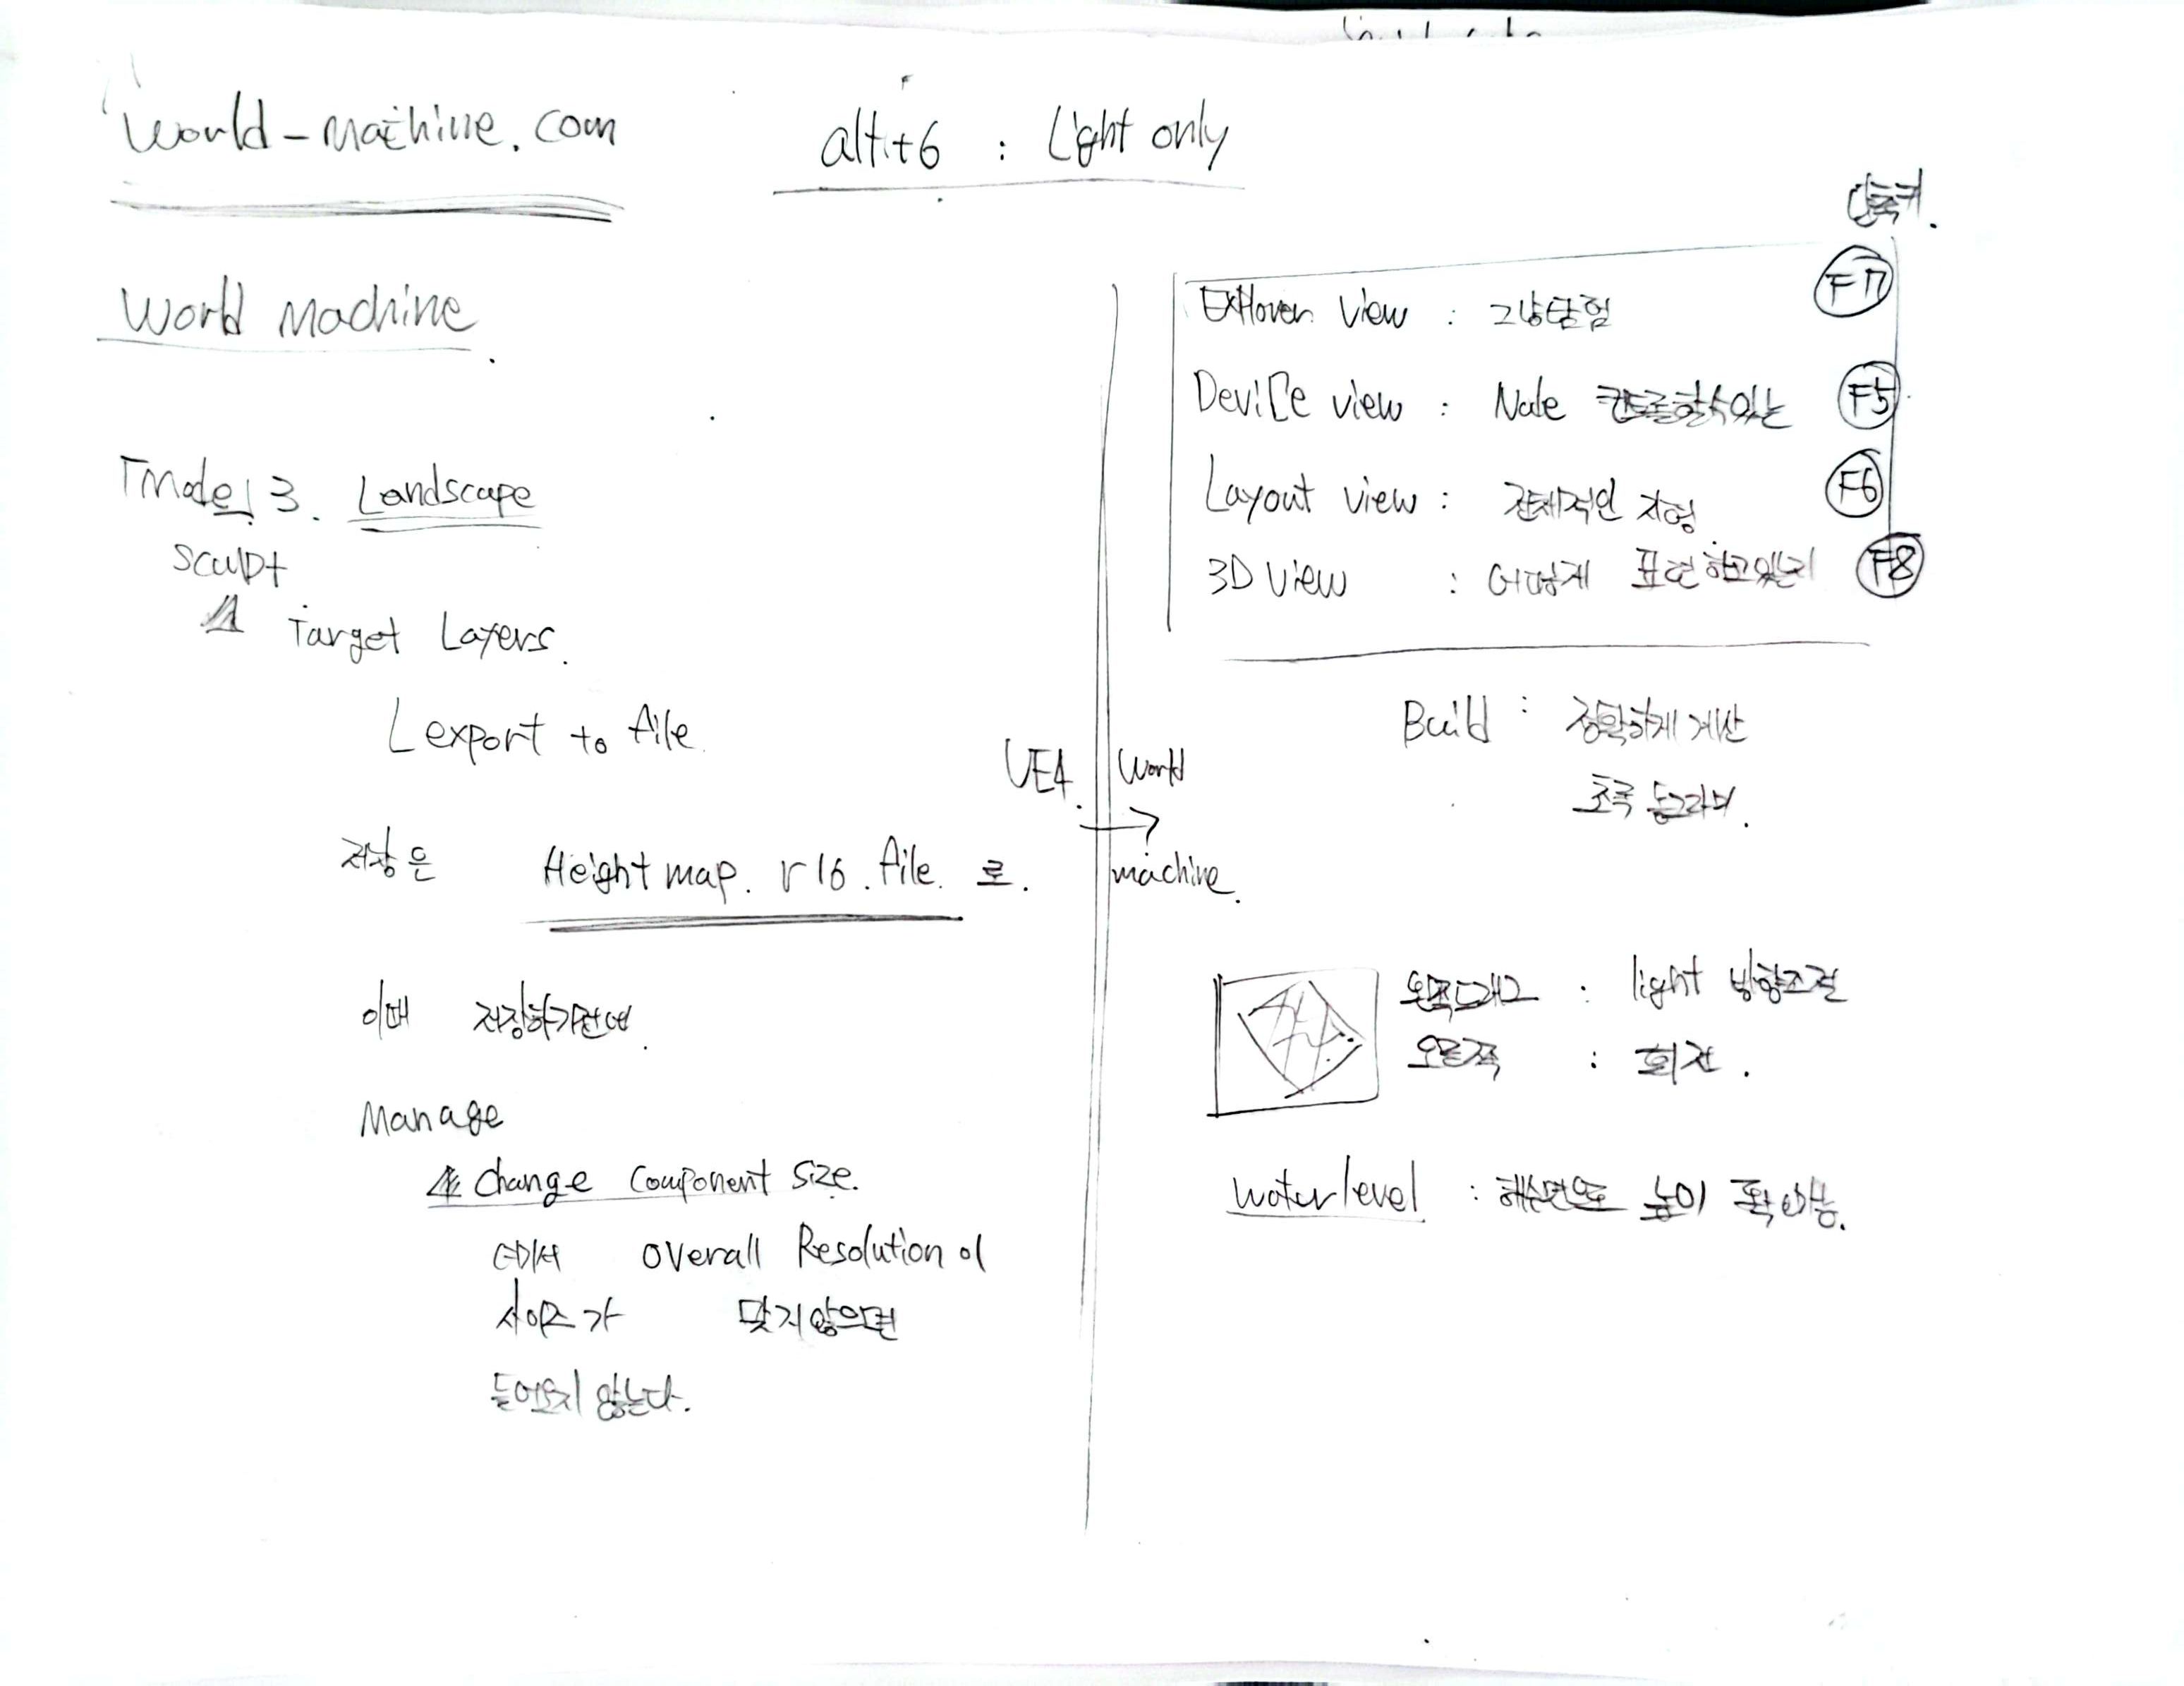 world-machine.com
alt+6 : Light only
World Machine.
단축키.
Mode 3. Landscape
Sculpt
Target Layers.
export to file.
저장은 Heightmap. r16. file. 로.
이때 저장하기전에.
Manage
Change Component Size.
에서 Overall Resolution이
사이즈가 맞지않으면
들어오지 않는다.
UE4. → World machine.
view : 그냥탐험 F7
Device view : Node 컨트롤할수있는 F5
Layout view : 전체적인 지형. F6
3D view : 어떻게 표현하고있는지 F8
Build : 정확하게 계산
초록 동그라미.
왼쪽드래그 : light 방향조절
오른쪽 : 회전.
water level : 해수면으로 높이